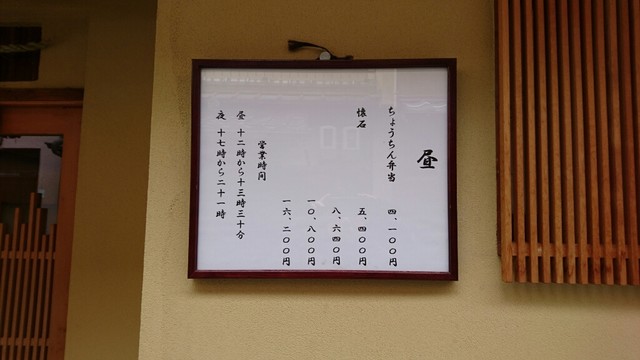 昼
ちょうちん弁当 四、一〇〇円
懐石 五、四〇〇円
八、六四〇円
一〇、八〇〇円
一六、二〇〇円
営業時間
昼 十二時から十三時三十分
夜 十七時から二十一時